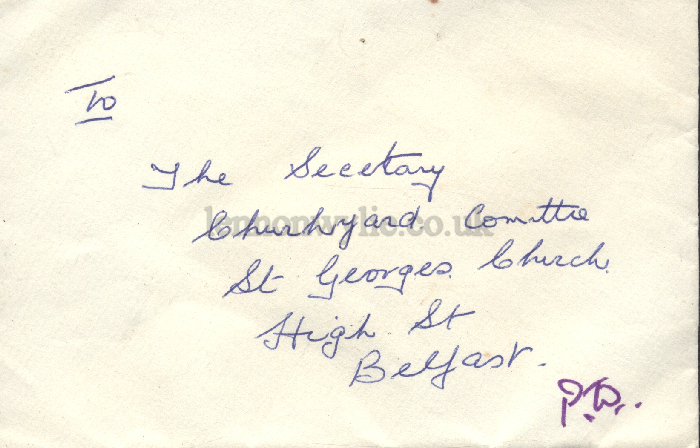 To
The Secetary
Churhyard Comittee
St Georges Church.
High St
Belfast.
lennonwylie.co.uk